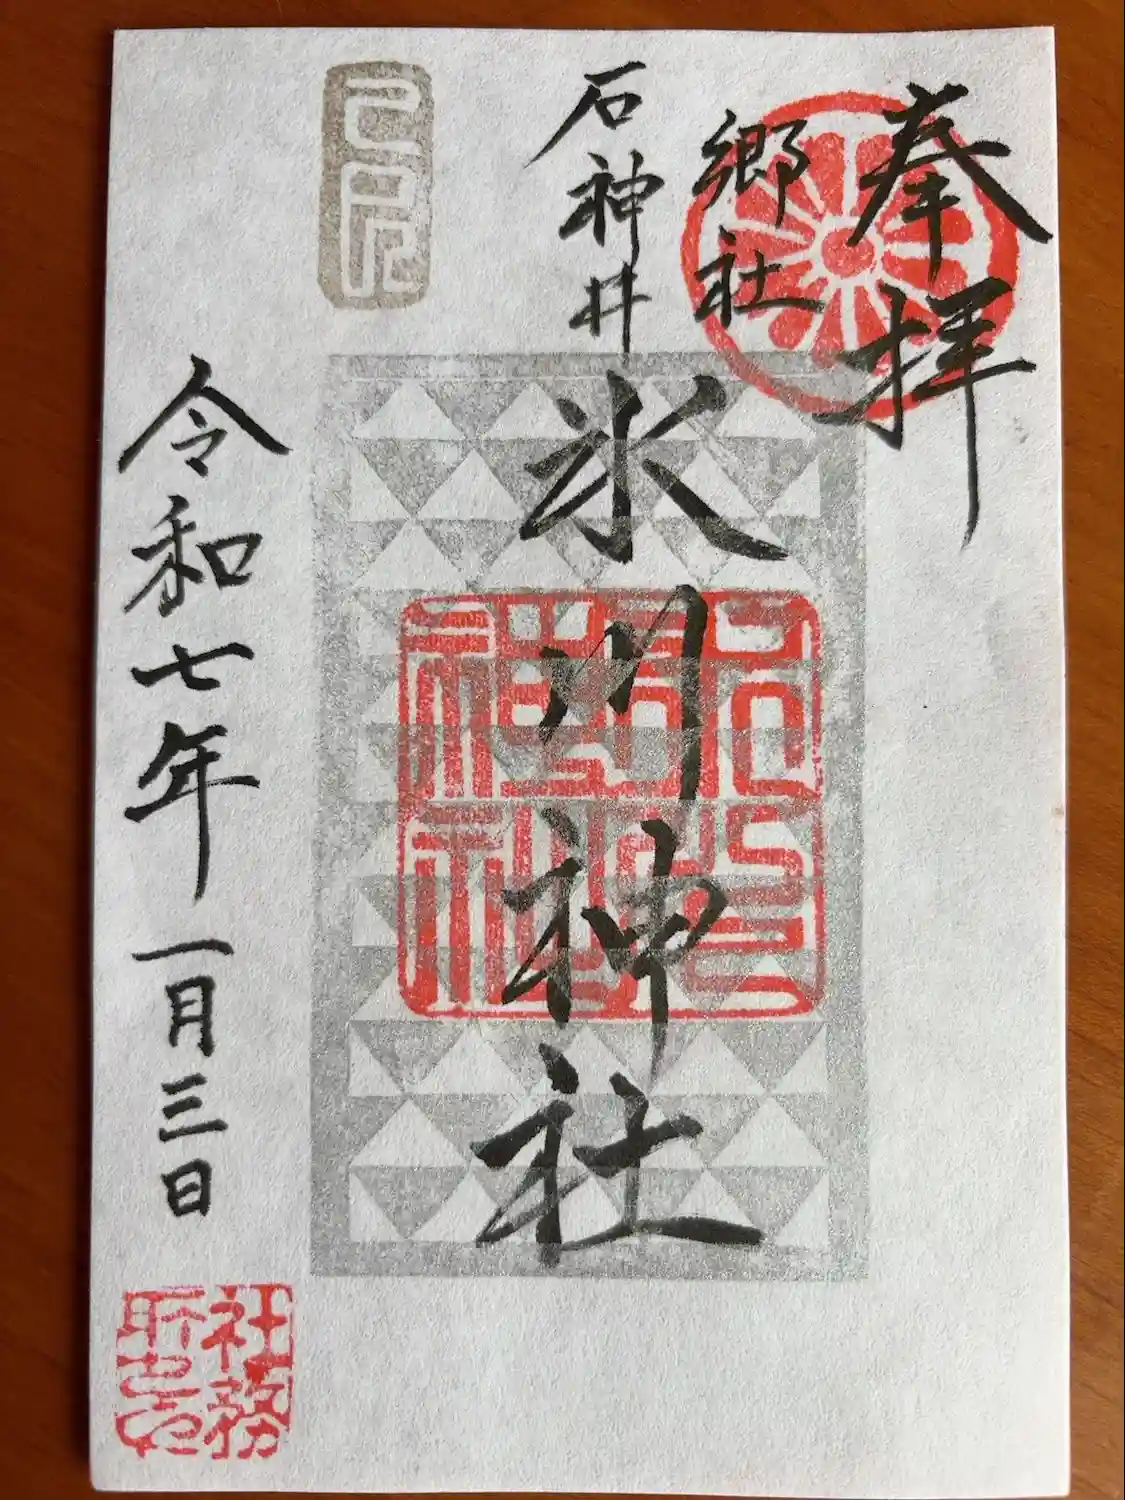 奉拝
郷社
石神井
氷川神社
石神井氷川神社
令和七年一月三日
社務所之印